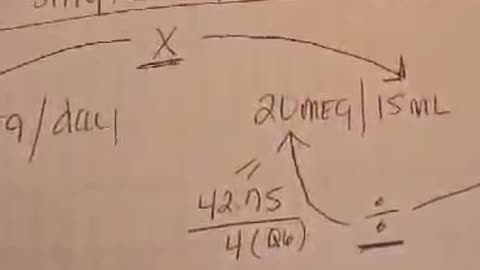 X
/day
20MEQ/15ML
42.75
4(Q6)
÷